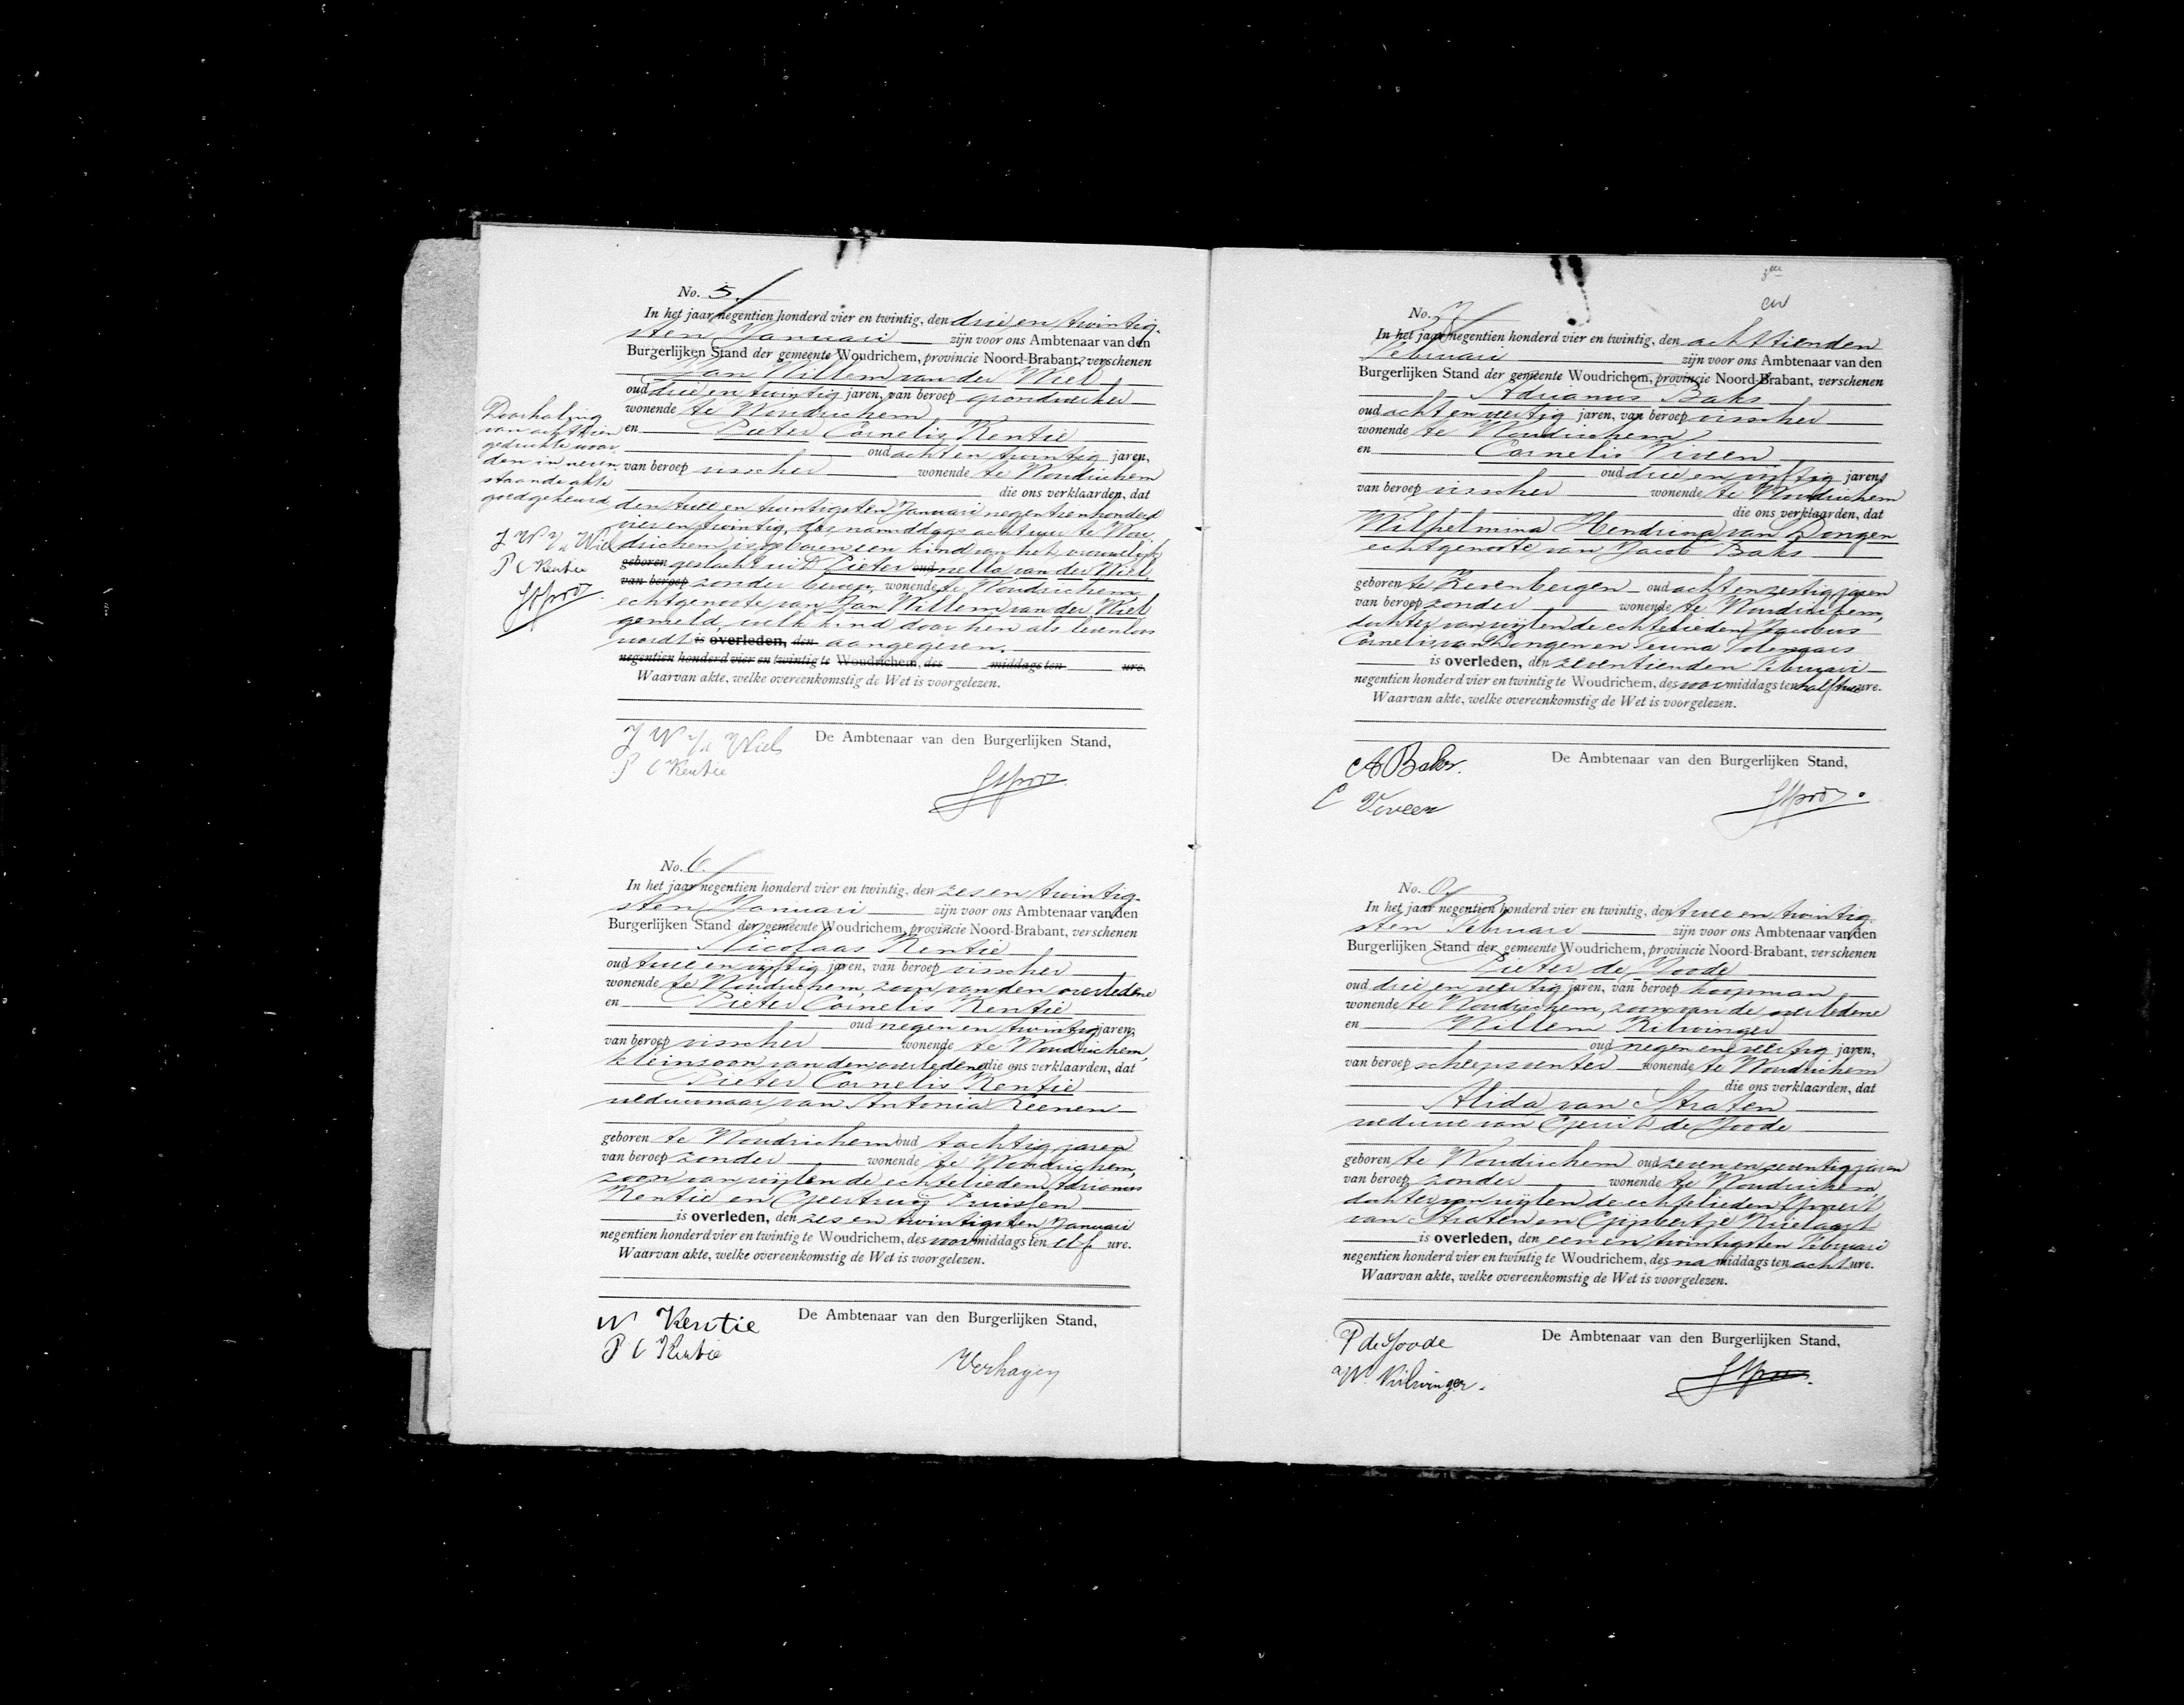 No. 5.
In het jaar negentien honderd vier en twintig, den drie en twintig-
sten Januari zijn voor ons Ambtenaar van den
Burgerlijken Stand der gemeente Woudrichem, provincie Noord-Brabant, verschenen
Jan Willem van der Wiel
oud drie en twintig jaren, van beroep grondwerker
wonende te Woudrichem
en Pieter Cornelis Kentie
oud acht en twintig jaren,
van beroep visscher wonende te Woudrichem
die ons verklaarden, dat
den twee en twintigsten Januari negentienhonderd
vier en twintig, des namiddags acht ure te Wou-
drichem is geboren een kind van het vrouwelijk
geboren geslacht uit Pieter oud nella van der Wiel,
van beroep zonder beroep, wonende te Woudrichem
echtgenoote van Jan Willem van der Wiel
gemeld, welk kind door hen als levenloos
wordt is overleden, den aangegeven.
negentien honderd vier en twintig te Woudrichem, des middags ten ure.
Waarvan akte, welke overeenkomstig de Wet is voorgelezen.
Doorhaling
van achttien
gedrukte woor-
den in neven-
staande akte
goedgekeurd
J W v/d Wiel
P C Kentie
J W v/d Wiel
P C Kentie
De Ambtenaar van den Burgerlijken Stand,
No. 6.
In het jaar negentien honderd vier en twintig, den zes en twintig-
sten Januari zijn voor ons Ambtenaar van den
Burgerlijken Stand der gemeente Woudrichem, provincie Noord-Brabant, verschenen
Nicolaas Kentie
oud twee en vijftig jaren, van beroep visscher
wonende te Woudrichem, zoon van den overledene
en Pieter Cornelis Kentie
oud negen en twintig jaren,
van beroep visscher wonende te Woudrichem,
kleinzoon van den overledene die ons verklaarden, dat
Pieter Cornelis Kentie
weduwnaar van Antonia Keenen
geboren te Woudrichem oud tachtig jaren
van beroep zonder wonende te Woudrichem,
zoon van wijlen de echtelieden Adrianus
Kentie en Geertruij
is overleden, den zes en twintigsten Januari
negentien honderd vier en twintig te Woudrichem, des voormiddags ten elf ure.
Waarvan akte, welke overeenkomstig de Wet is voorgelezen.
N Kentie
P C Kentie
De Ambtenaar van den Burgerlijken Stand,
Verhagen
No. 7.
In het jaar negentien honderd vier en twintig, den achttienden
Februari zijn voor ons Ambtenaar van den
Burgerlijken Stand der gemeente Woudrichem, provincie Noord-Brabant, verschenen
Adrianus Baks
oud acht en veertig jaren, van beroep visscher
wonende te Woudrichem
en Cornelis Viveen
oud drie en vijftig jaren,
van beroep visscher wonende te Woudrichem
die ons verklaarden, dat
Wilhelmina Hendrina van Dongen
echtgenoote van Jacob Baks
geboren te Zevenbergen oud acht en zestig jaren
van beroep zonder wonende te Woudrichem,
dochter van wijlen de echtelieden Jacobus
Cornelis van Dongen en Teuna
is overleden, den zeventienden Februari
negentien honderd vier en twintig te Woudrichem, des voormiddags ten half twee ure.
Waarvan akte, welke overeenkomstig de Wet is voorgelezen.
A Baks.
C Viveen
De Ambtenaar van den Burgerlijken Stand,
No. 8.
In het jaar negentien honderd vier en twintig, den twee en twintig-
sten Februari zijn voor ons Ambtenaar van den
Burgerlijken Stand der gemeente Woudrichem, provincie Noord-Brabant, verschenen
Pieter de Joode
oud drie en veertig jaren, van beroep koopman
wonende te Woudrichem, zoon van de overledene
en Willem Kilwinger
oud negen en veertig jaren,
van beroep scheepsventer wonende te Woudrichem
die ons verklaarden, dat
Alida van Straten
weduwe van Gerrit de Joode
geboren te Woudrichem oud zeven en zeventig jaren
van beroep zonder wonende te Woudrichem,
dochter van wijlen de echtelieden Govert
van Straten en Gijsbertje
is overleden, den een en twintigsten Februari
negentien honderd vier en twintig te Woudrichem, des na middags ten acht ure.
Waarvan akte, welke overeenkomstig de Wet is voorgelezen.
P de Joode
W. Kilwinger.
De Ambtenaar van den Burgerlijken Stand,